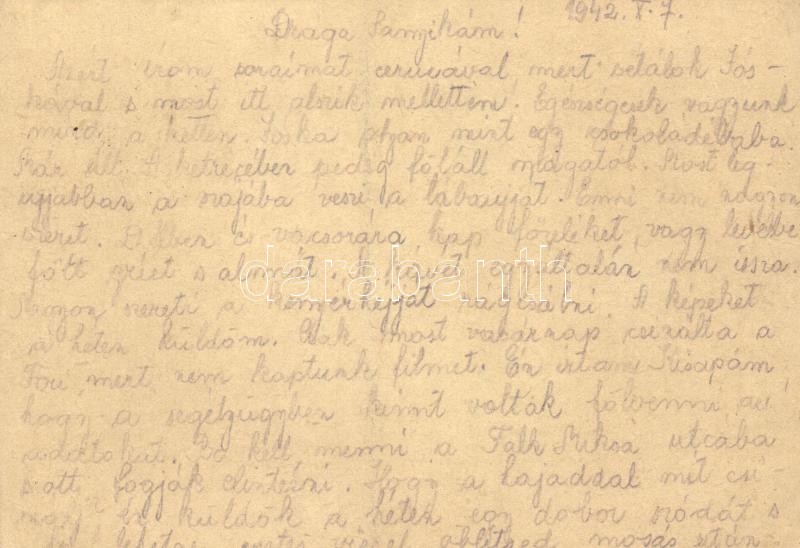 1942. X. 7.
Draga Sanyikám!
Azért irom soraimat ceruzával, mert sétálok Jós-
kával s most itt alszik mellettem. Egészségesek vagyunk
mind a ketten. Jóska olyan mint egy csokoládébaba.
Már áll. A ketrecében pedig föláll magától. Most leg-
ujjabban a szájába veszi a lábaujját. Enni nem nagyon
szeret. Délben és vacsorára kap főzeléket, vagy levesbe
főtt gríet s almát. A kávét egyáltalán nem issza.
Nagyon szereti a kenyérhéjját rágcsálni. A képeket
a héten küldöm. Csak most vasárnap csinálta a
Feri mert nem kaptunk filmet. Én irtam Kisapám
hogy a segélyügyben kinnt voltak fölvenni az
adatokat. Be kell menni a Falk Miksa utcába
s ott fogják elintézni. Hogy a hajaddal mit csi-
nálj én küldök a héten egy doboz szódát s
vízzel öblítsed mosás után
darabanth